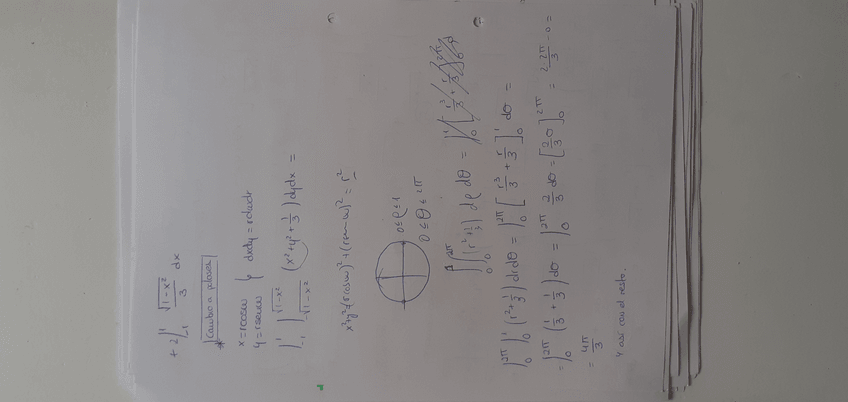 + 2∫₋₁¹ √(1-x²)/3 dx
* Cambio a polares
x = rcosω
y = rsenω } dxdy = rdωdr
∫₋₁¹ ∫ √1-x² √1-x² (x²+y²+1/3) dydx =
x²+y² = (rcosω)²+(rsenω)² = r²
0 ≤ ρ ≤ 1
0 ≤ θ ≤ 2π
∫₀ ∫₀^2π (r²+1/3) dρ dθ = ∫₀¹ [r³/3 + r/3]₀^2π
∫₀^2π ∫₀¹ (r²+1/3) drdθ = ∫₀^2π [r³/3 + r/3]₀¹ dθ =
= ∫₀^2π (1/3 + 1/3) dθ = ∫₀^2π 2/3 dθ = [2/3 θ]₀^2π = 2·2π/3 - 0 =
= 4π/3
Y así con el resto.